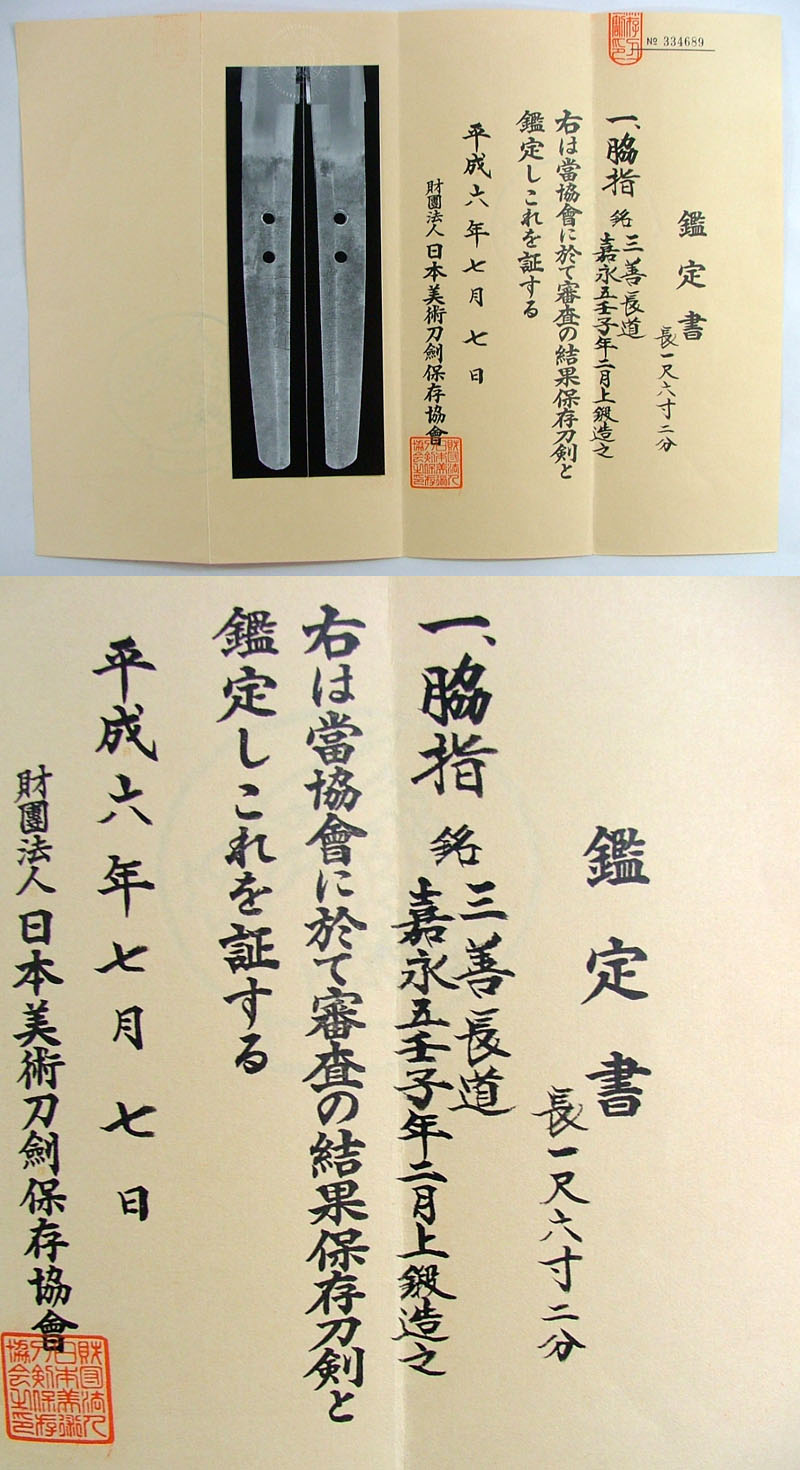 № 334689
鑑定書
長一尺六寸二分
一、脇指 銘 三善長道
嘉永五壬子年二月上鍛造之
右は當協會に於て審査の結果保存刀剣と
鑑定しこれを証する
平成六年七月七日
財團法人 日本美術刀劍保存協會
鑑定書
長一尺六寸二分
一、脇指 銘 三善長道
嘉永五壬子年二月上鍛造之
右は當協會に於て審査の結果保存刀剣と
鑑定しこれを証する
平成六年七月七日
財團法人 日本美術刀劍保存協會